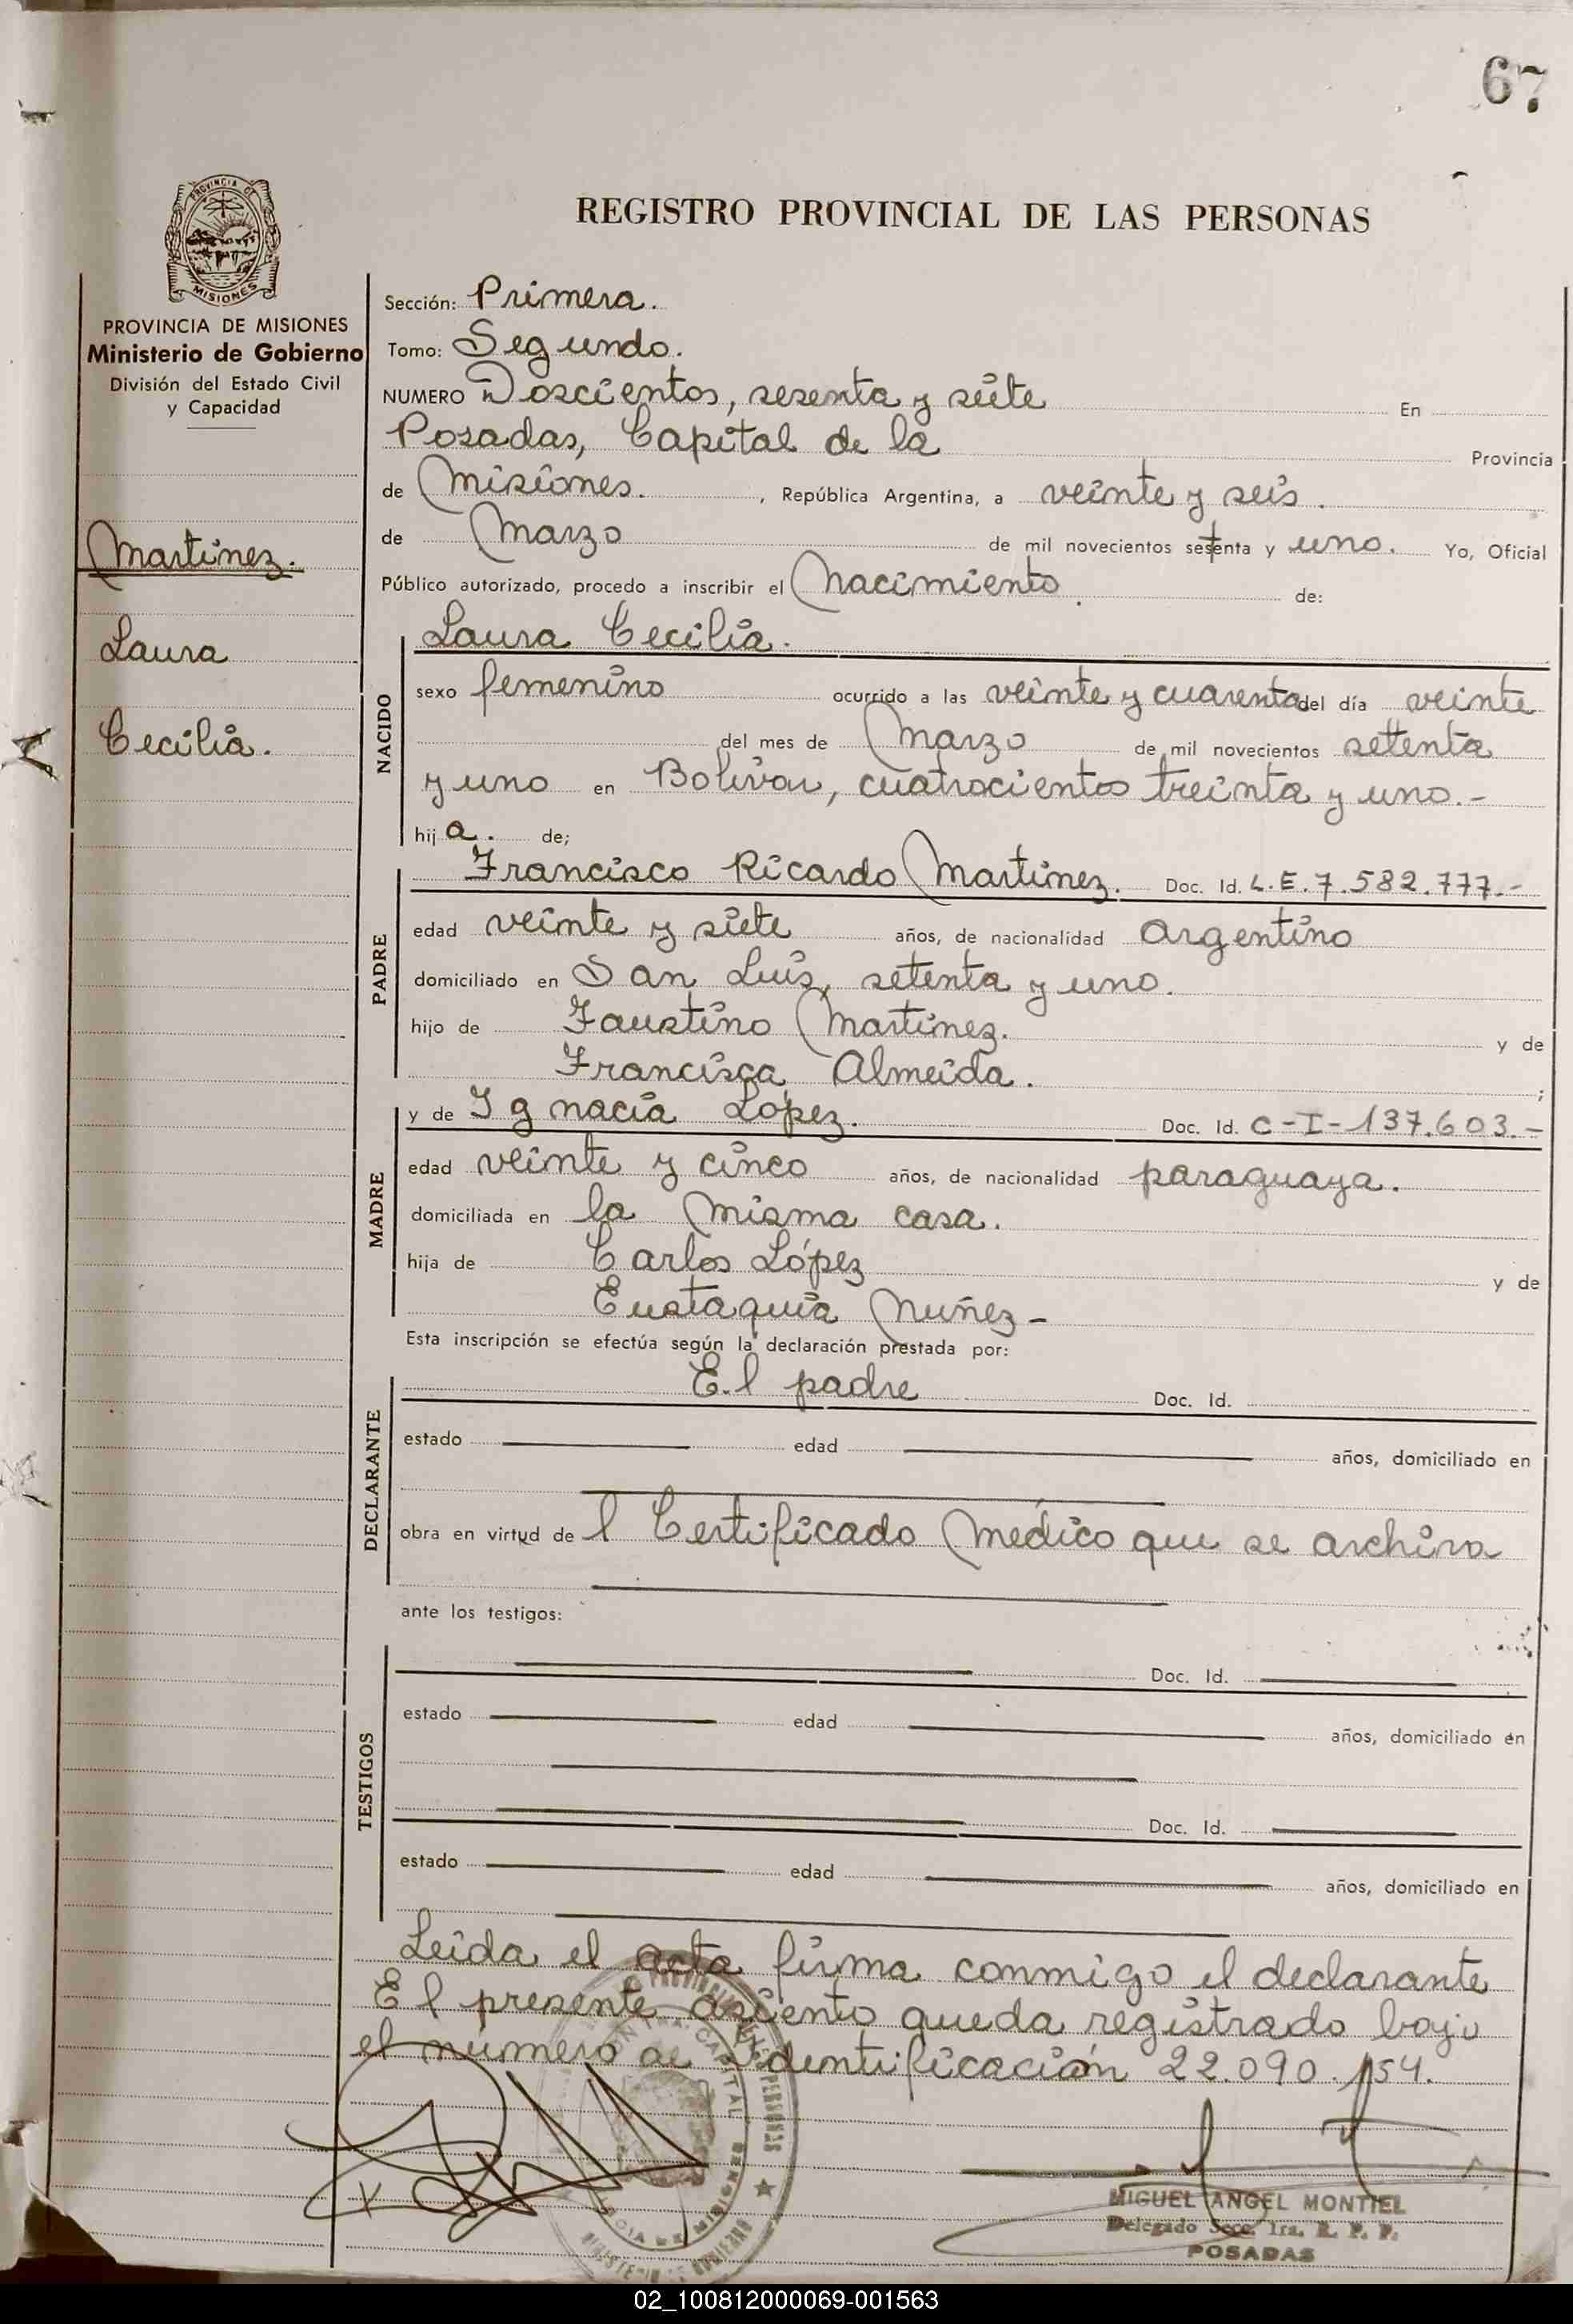 67
REGISTRO PROVINCIAL DE LAS PERSONAS
PROVINCIA DE
MISIONES
PROVINCIA DE MISIONES
Ministerio de Gobierno
División del Estado Civil
y Capacidad
Martinez.
Laura
Cecilia.
Sección: Primera.
Tomo: Segundo.
NUMERO Doscientos, sesenta y siete En
Posadas, Capital de la Provincia
de Misiones. , República Argentina, a veinte y seis.
de Marzo de mil novecientos setenta y uno. Yo, Oficial
Público autorizado, procedo a inscribir el Nacimiento. de:
NACIDO
Laura Cecilia.
sexo femenino ocurrido a las veinte y cuarenta del día veinte
del mes de Marzo de mil novecientos setenta
y uno en Bolívar, cuatrocientos treinta y uno.-
hij a. de;
PADRE
Francisco Ricardo Martinez. Doc. Id. L.E. 7.582.777.-
edad veinte y siete años, de nacionalidad Argentino
domiciliado en San Luis, setenta y uno.
hijo de Faustino Martinez. y de
Francisca Almeida. ;
MADRE
y de Ignacia López. Doc. Id. C-I-137.603.-
edad veinte y cinco años, de nacionalidad paraguaya.
domiciliada en la misma casa.
hija de Carlos López y de
Eustaquia Nuñez-
Esta inscripción se efectúa según la declaración prestada por:
DECLARANTE
E.l padre Doc. Id.
estado edad años, domiciliado en
obra en virtud de l Certificado Médico que se archiva
ante los testigos:
TESTIGOS
Doc. Id.
estado edad años, domiciliado en
Doc. Id.
estado edad años, domiciliado en
Leida el acta firma conmigo el declarante
El presente asiento queda registrado bajo
el número de Identificación 22.090.154.
MIGUEL ANGEL MONTIEL
Delegado Secc. 1ra. R. P. P.
POSADAS
02_100812000069-001563